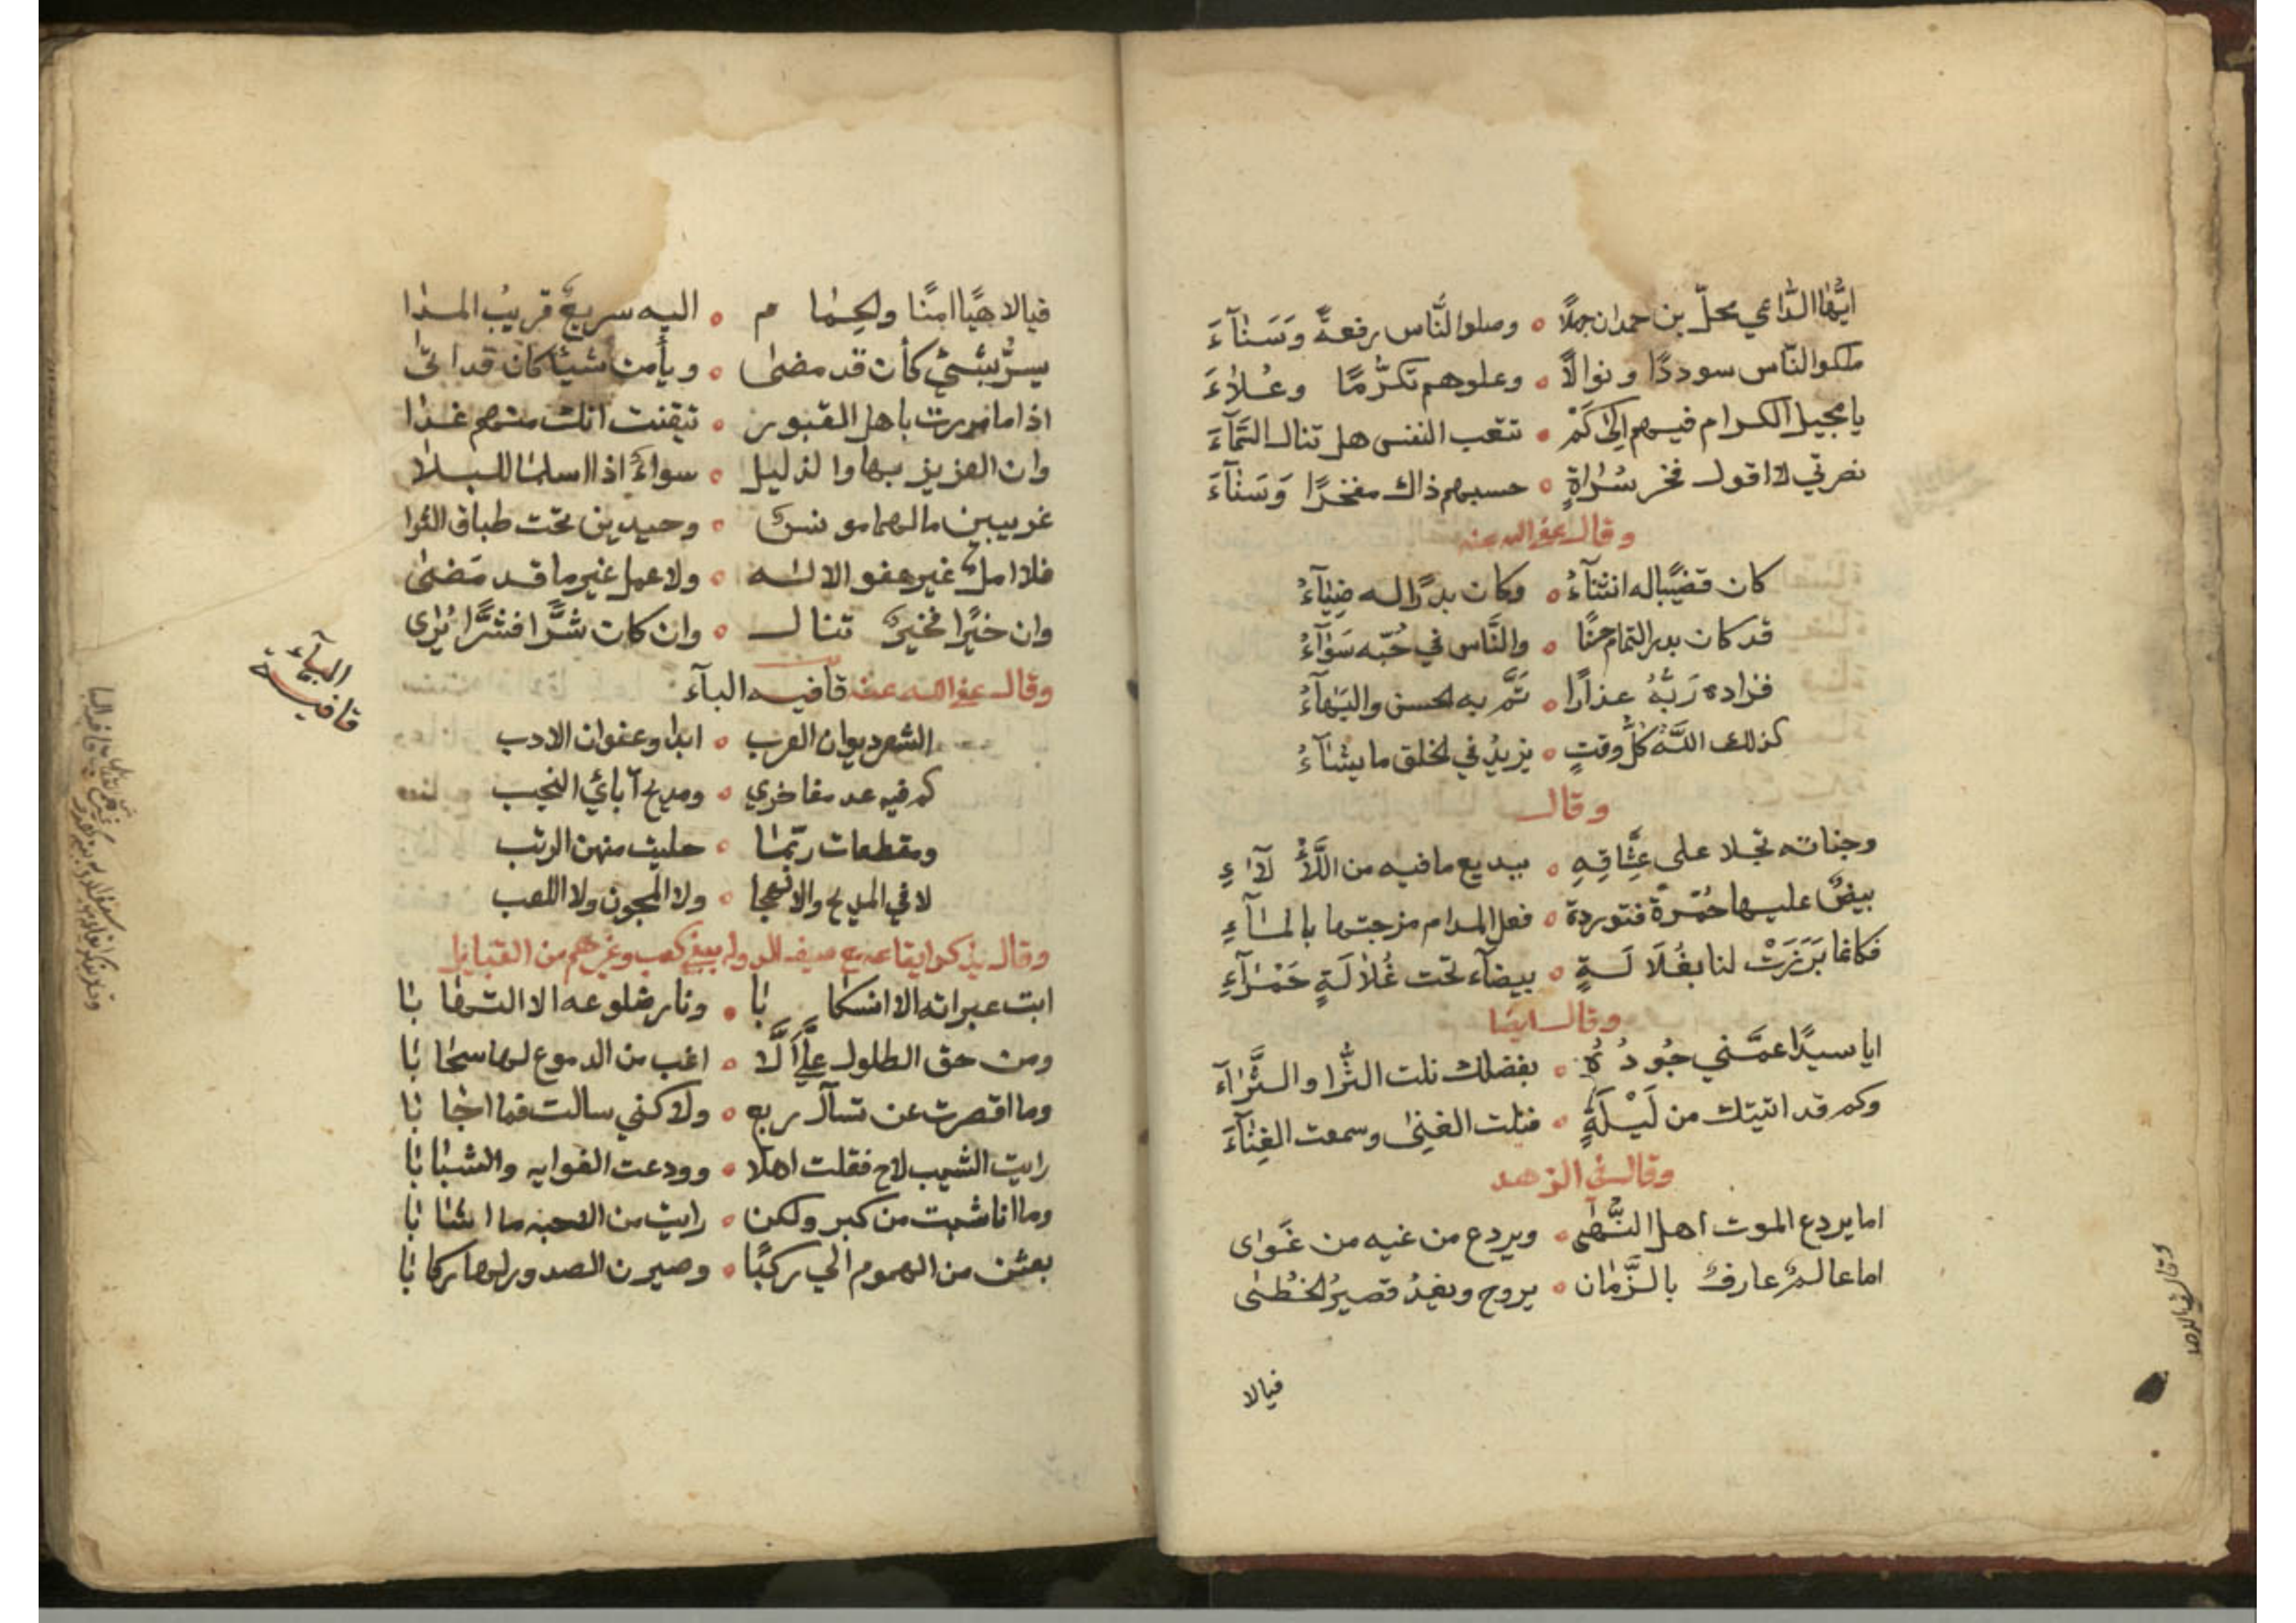 ايّها الدّاعي محلّ بن حمدان جهلًا ٥ وصلوا النّاس رفعةً وَسَنٰآءَ
ملكوا النّاس سوددًا ونوالًا ٥ وعلوهم تكرُّمًا وعُلآءَ
يا مجيل الكرام فيهم الىٰ كَمْ ٥ تتعب النفس هل تنال السَّمآءَ
نصرتي لا اقول فخر سُرٰاةٍ ٥ حسبهم ذاك مفخرًا وَسَنٰآءَ
وقال عفى الله عنه
كان قضيبًا له انثنٰآءُ ٥ وكان بدرًا له ضِيٰآءُ
قد كان بدر التمام حسنًا ٥ والنَّاس في حُبّه سَوٰآءُ
فزاده رَبُّهُ عذارًا ٥ تَمَّ به الحسن والبَهآءُ
كذلك اللّٰهُ كلَّ وقتٍ ٥ يزيدُ في الخلق ما يشٰآءُ
وقال
وجناته تجلا على عشّاقِهِ ٥ ببديع ما فيه من اللَّأْ لآءِ
بيضٌ عليها حُمْرةٌ فتوردة ٥ فعل المدام مزجتها بالمٰآءِ
فكانما بَرَزَتْ لنا بغُلَالَةٍ ٥ بيضآء تحت غُلٰالَةٍ حَمْرٰآءِ
وقال ايضًا
ايا سيدًا عمَّني جُودُهُ ٥ بفضلك نلت الثَّرا والثَّرٰآءَ
وكم قد اتيتك من لَيْلَةٍ ٥ فنلت الغنىٰ وسمعت الغِنٰآءَ
وقال في الزهد
اما يردع الموت اهل النُّهٰى ٥ ويردع من غيه من غَوٰاى
اما عالمٌ عارفٌ بالزَّمٰان ٥ يروح ويغدُ قصيرُ الخُطٰى
فيالا
فيالاهيًا امنًا والحِمٰام ٥ اليه سريعٌ قريبُ المدٰا
يسرُّ بشيٍ كأن قد مضىٰ ٥ ويأمن شيئًا كان قد اتىٰ
اذا ما مررت باهل القبور ٥ تيقنت انك منهم غدٰا
وان العزيز بها والذليل ٥ سواءٌ اذا اسلمٰا للبلا
غريبين ما لهما مونسٌ ٥ وحيدين تحت طباق الثرا
فلا املٌ غير عفو الالٰه ٥ ولا عمل غير ما قد مَضىٰ
وان خيرًا فخيرٌ تنال ٥ وان كان شرًّا فشرًّا يُرٰى
وقال عفى الله عنه قافيه البآء
البآء
قافية
الشعر ديوان العرب ٥ ابدا وعنوان الادب
كم فيه عد مفاخري ٥ ومديح آبائي النجب
ومقطعات ربّمٰا ٥ حليت منهن الرتب
لا في المديح والا الهجا ٥ ولا المجون ولا اللعب
وقال يذكر ايقاعه مع سيف الدوله ببني كعب وغيرهم من القبايل
ابت عبراته الا انسكابا ٥ ونار ضلوعه الا التهابا
ومن حق الطلول عليَّ الَّا ٥ اغب من الدموع لها سحابا
وما اقصرت عن تسآل ربع ٥ ولاكني سالت فما اجابا
رايت الشيب لاح فقلت اهلا ٥ وودعت الغوايه والشبابا
وما انا شبت من كبر ولكن ٥ رايت من الاحبه ما اشابا
بعثن من الهموم الي ركبًا ٥ وصيرن الصدور لها ركابا
وقال في الزهد